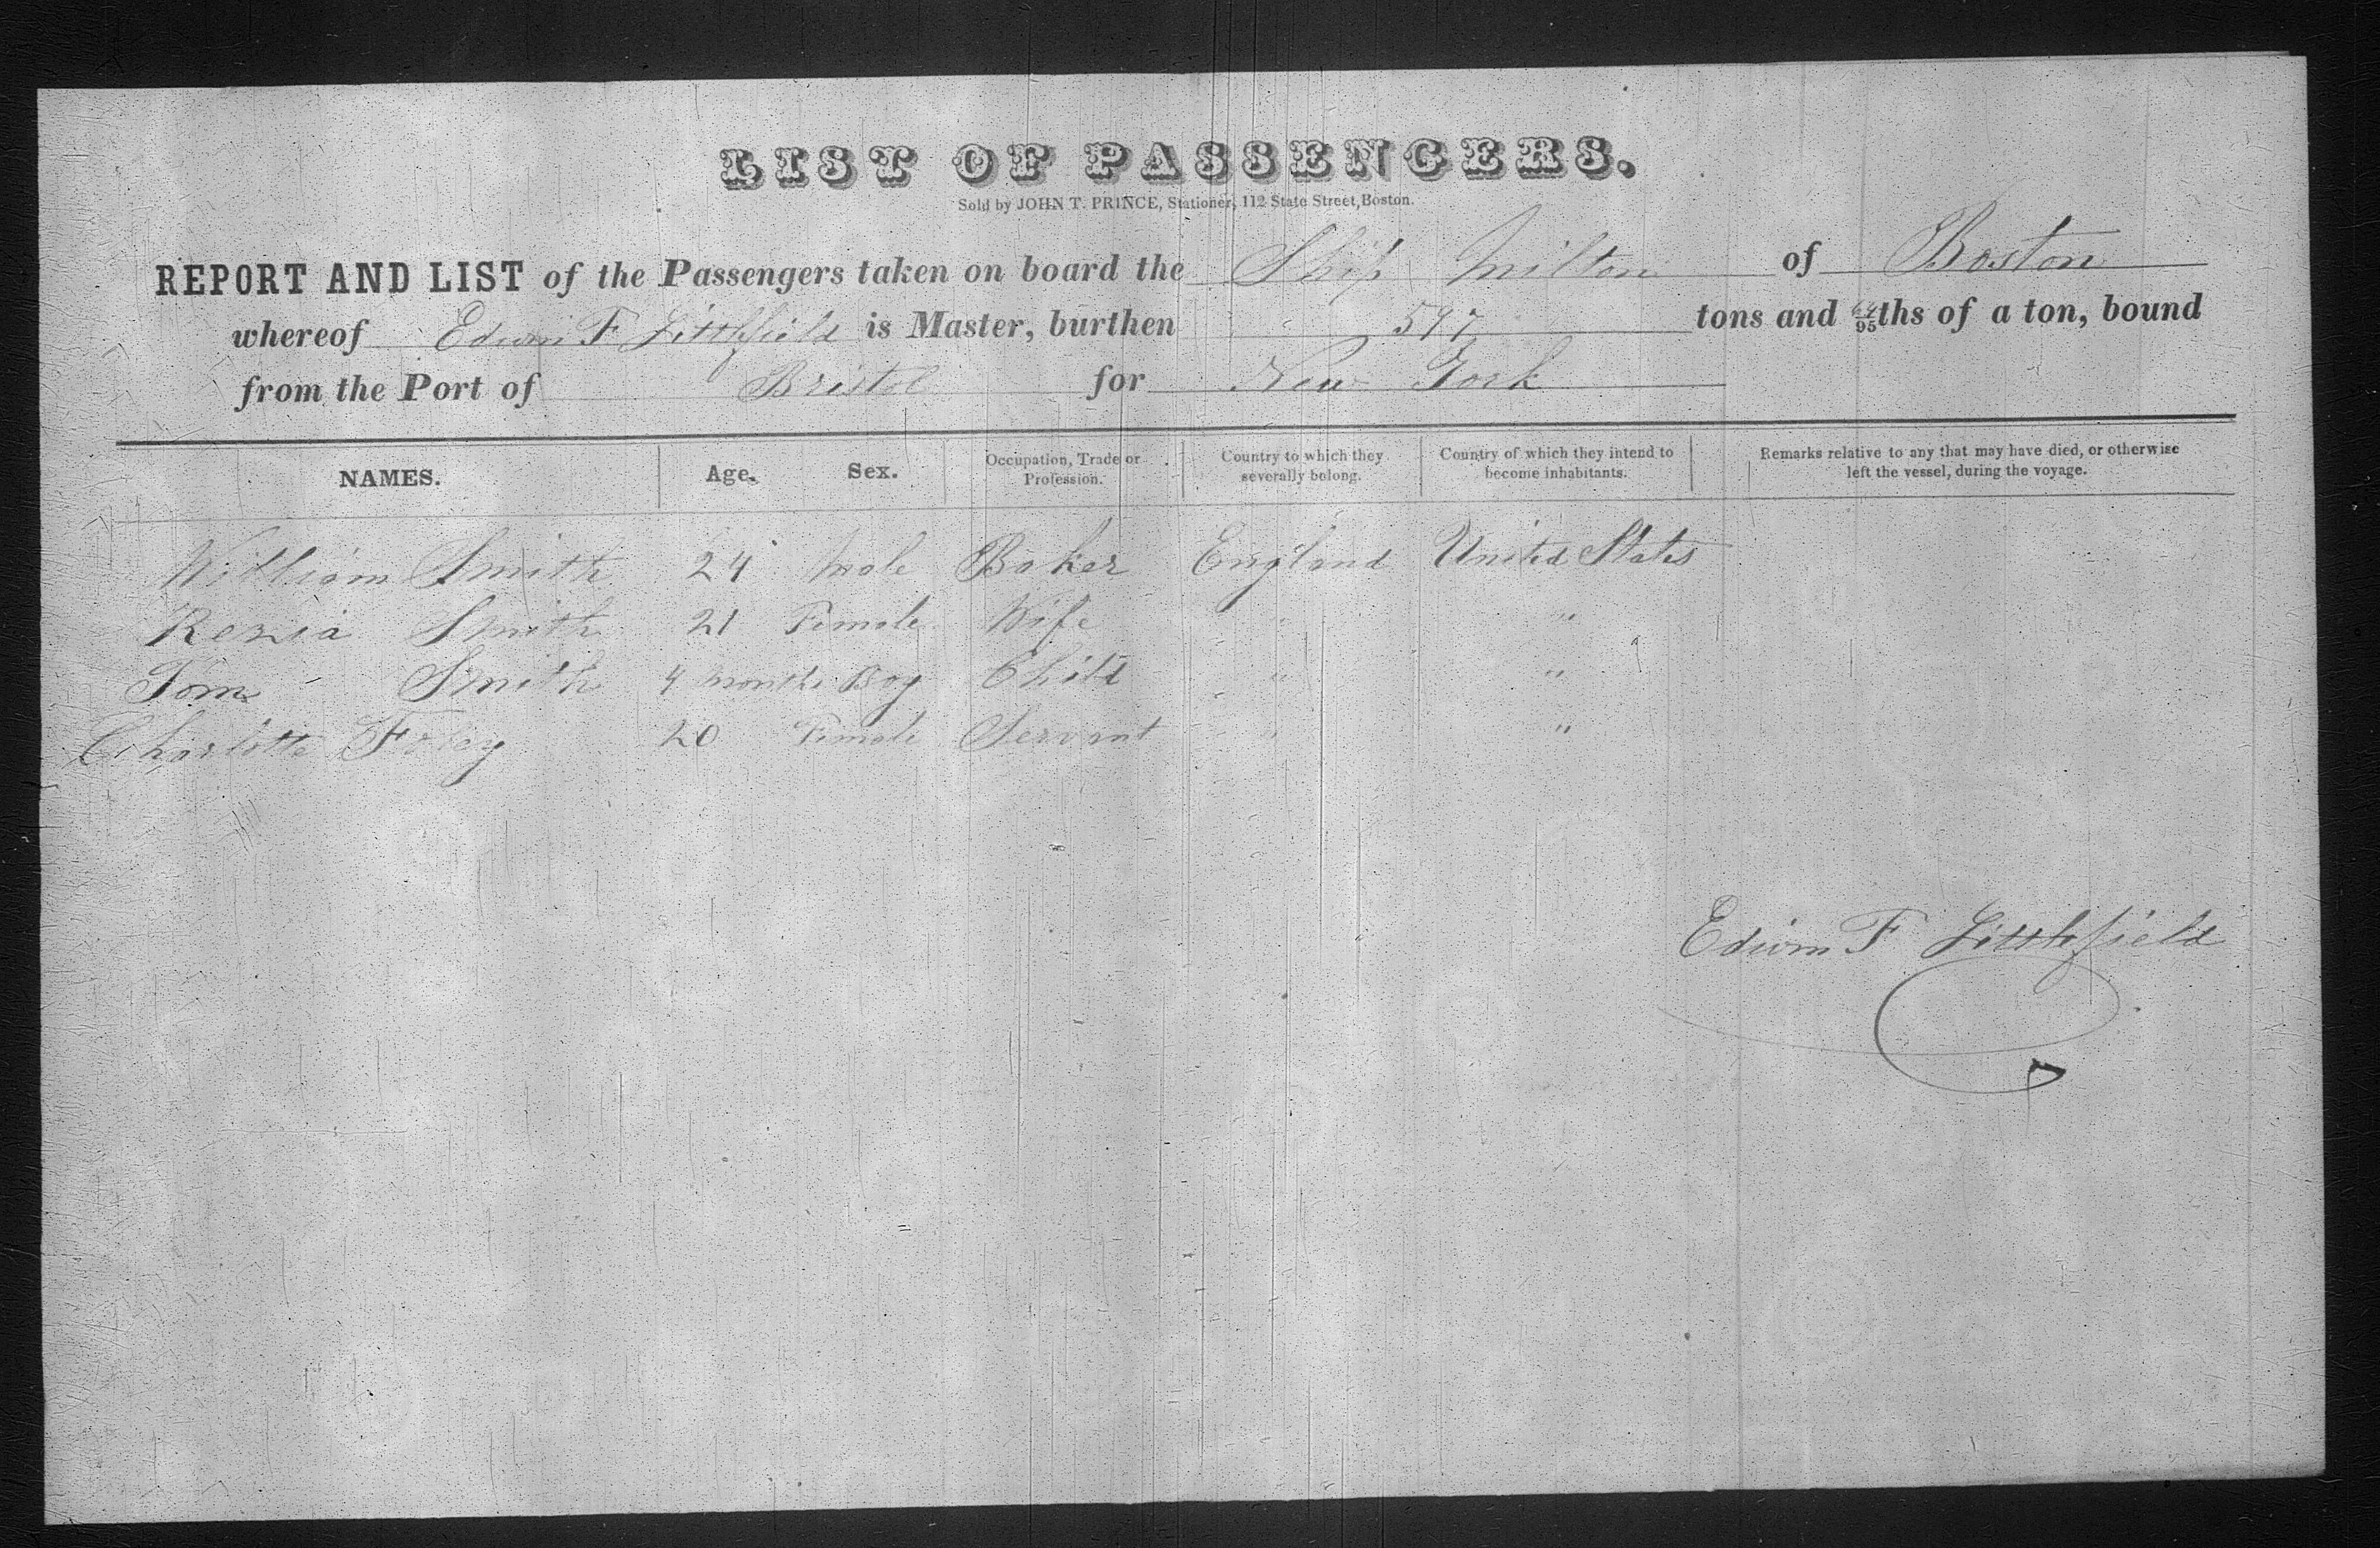 LIST OF PASSENGERS.
Sold by JOHN T. PRINCE, Stationer, 112 State Street, Boston.
REPORT AND LIST of the Passengers taken on board the Ship Milton of Boston
whereof Edwin F Littlefield is Master, burthen 597 tons and /95ths of a ton, bound
from the Port of Bristol for New York
NAMES. Age. Sex. Occupation, Trade or Profession. Country to which they severally belong. Country of which they intend to become inhabitants. Remarks relative to any that may have died, or otherwise left the vessel, during the voyage.
William Smith 24 Male Baker England United States
Kezia Smith 21 Female Wife " "
Tom Smith 4 months Boy Child " "
Charlotte Foley 20 Female Servant " "
Edwin F Littlefield